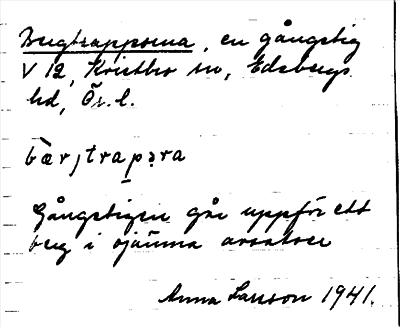 Bergtrapporna, en gångstig
V 12, Kristbro sn, Edsbergs
hd, Ör. l.
bær̡trapəra
Gångstigen går uppför ett
berg i ojämna avsatser
Anna Larsson 1941.